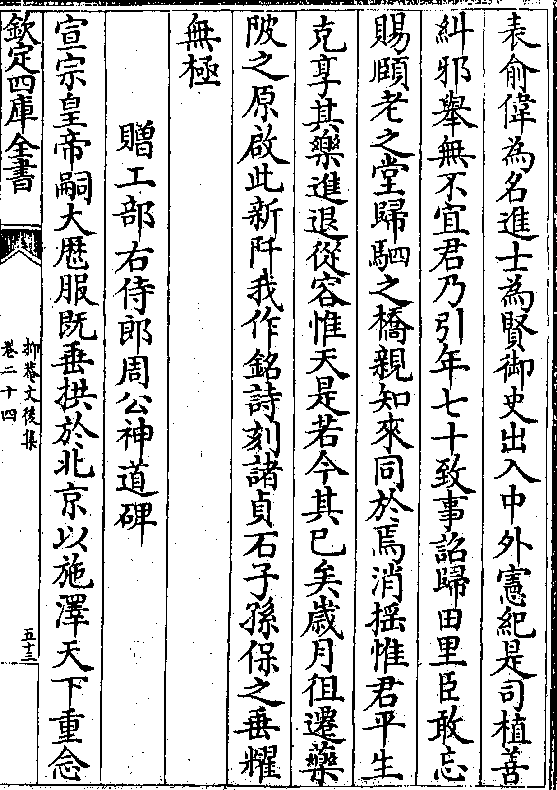 表俞偉為名進士為賢御史出入中外憲紀是司植善
糾邪舉無不宜君乃引年七十致事詔歸田里臣敢忘
賜頤老之堂歸駟之橋親知來同於焉消揺惟君平生
克享其樂進退從容惟天是若今其已矣歳月徂遷藥
陂之原啟此新阡我作銘詩刻諸貞石子孫保之垂耀
無極
贈工部右侍郎周公神道碑
宣宗皇帝嗣大歴服既垂拱於北京以施澤天下重念
欽定四庫全書
抑菴文後集
卷二十四
五十三